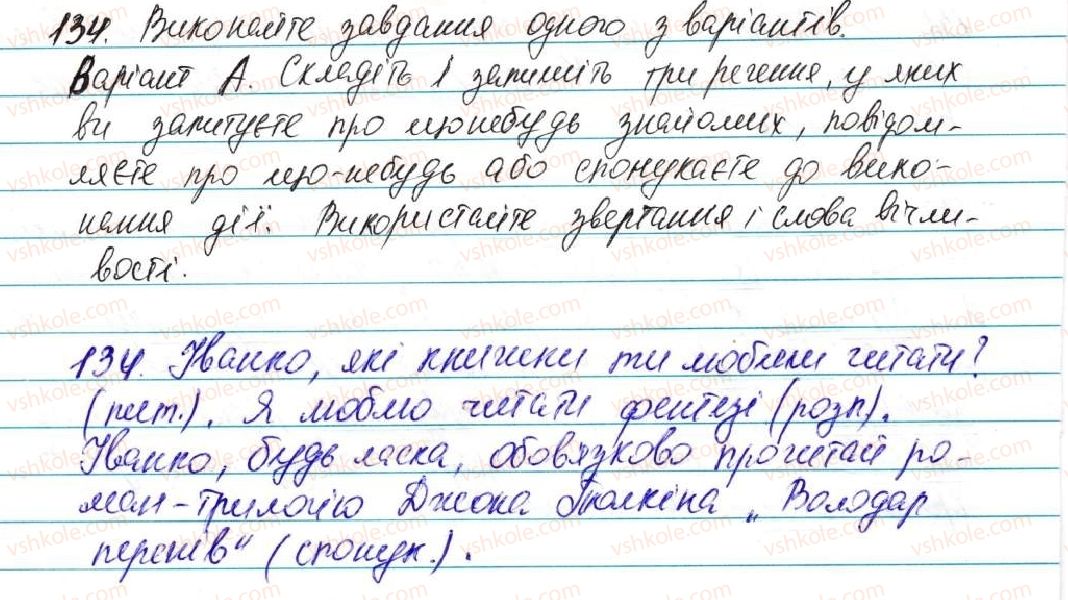 134. Виконайте завдання одного з варіантів.
Варіант А. Складіть і запишіть три речення, у яких
ви запитуєте про щонебудь знайомих, повідом-
ляєте про що-небудь або спонукаєте до вико-
нання дії. Використайте звертання і слова вічли-
вості.
134. Іванко, які книжки ти любиш читати?
(пит.). Я люблю читати фентезі (розп).
Іванко, будь ласка, обов'язково прочитай ро-
ман-трилогію Джона Толкіна „Володар
перснів" (спонук.).